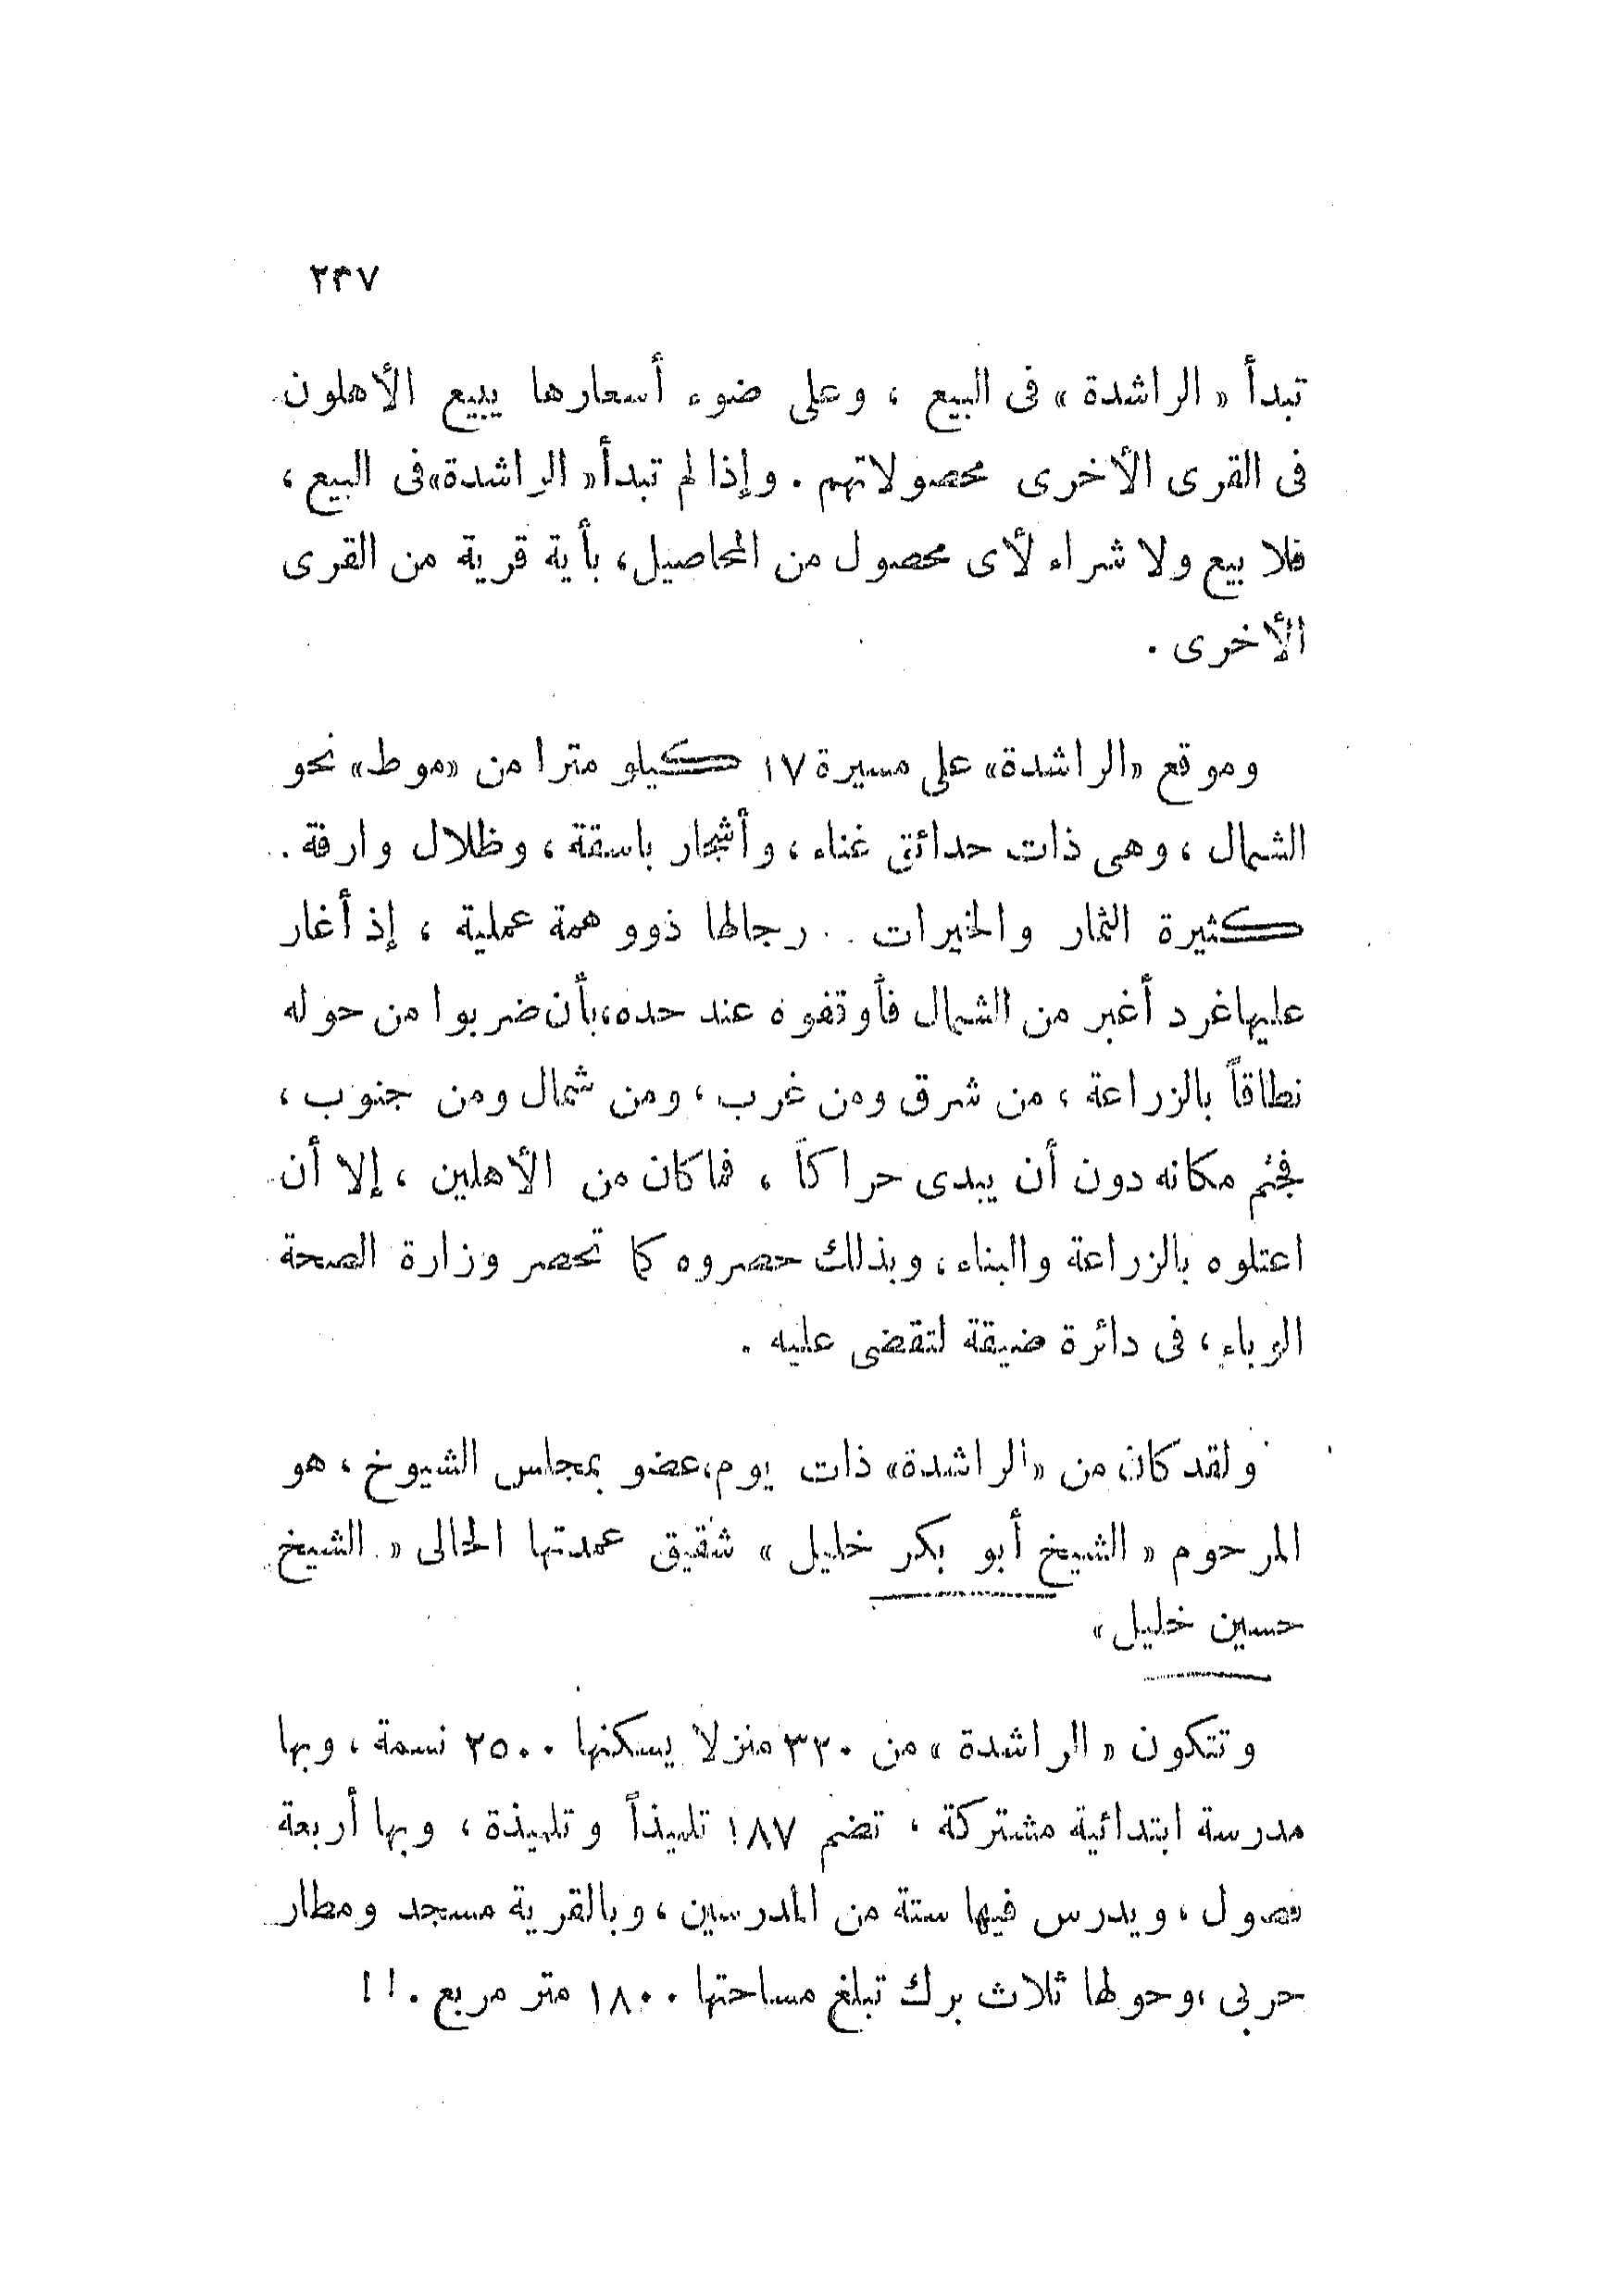 ٢٣٧
تبدأ « الراشدة » فى البيع ، وعلى ضوء أسعارها يبيع الأهلون
فى القرى الأخرى محصولاتهم . وإذا لم تبدأ « الراشدة» فى البيع ،
فلا بيع ولا شراء لأى محصول من المحاصيل، بأية قرية من القرى
الأخرى .
وموقع «الراشدة» على مسيرة ١٧ كيلو مترا من «موط» نحو
الشمال ، وهى ذات حدائق غناء ، وأشجار باسقة ، وظلال وارفة .
كثيرة الثمار والخيرات . . رجالها ذوو همة عملية ، إذ أغار
عليها غرد أغبر من الشمال فأوقفوه عند حده، بأن ضربوا من حوله
نطاقاً بالزراعة ، من شرق ومن غرب ، ومن شمال ومن جنوب ،
فجثم مكانه دون أن يبدى حراكاً ، فما كان من الأهلين ، إلا أن
اعتلوه بالزراعة والبناء ، وبذلك حصروه كما تحصر وزارة الصحة
الوباء ، فى دائرة ضيقة لتقضى عليه .
ولقد كان من «الراشدة» ذات يوم، عضو بمجلس الشيوخ ، هو
المرحوم « الشيخ أبو بكر خليل » شقيق عمدتها الحالى « الشيخ
حسين خليل»
وتتكون « الراشدة » من ٣٢٠ منزلا يسكنها ٢٥٠٠ نسمة ، وبها
مدرسة ابتدائية مشتركة ، تضم ١٨٧ تلميذاً وتلميذة ، وبها أربعة
فصول ، ويدرس فيها ستة من المدرسين ، وبالقرية مسجد ومطار
حربى ، وحولها ثلاث برك تبلغ مساحتها ١٨٠٠ متر مربع . ! !